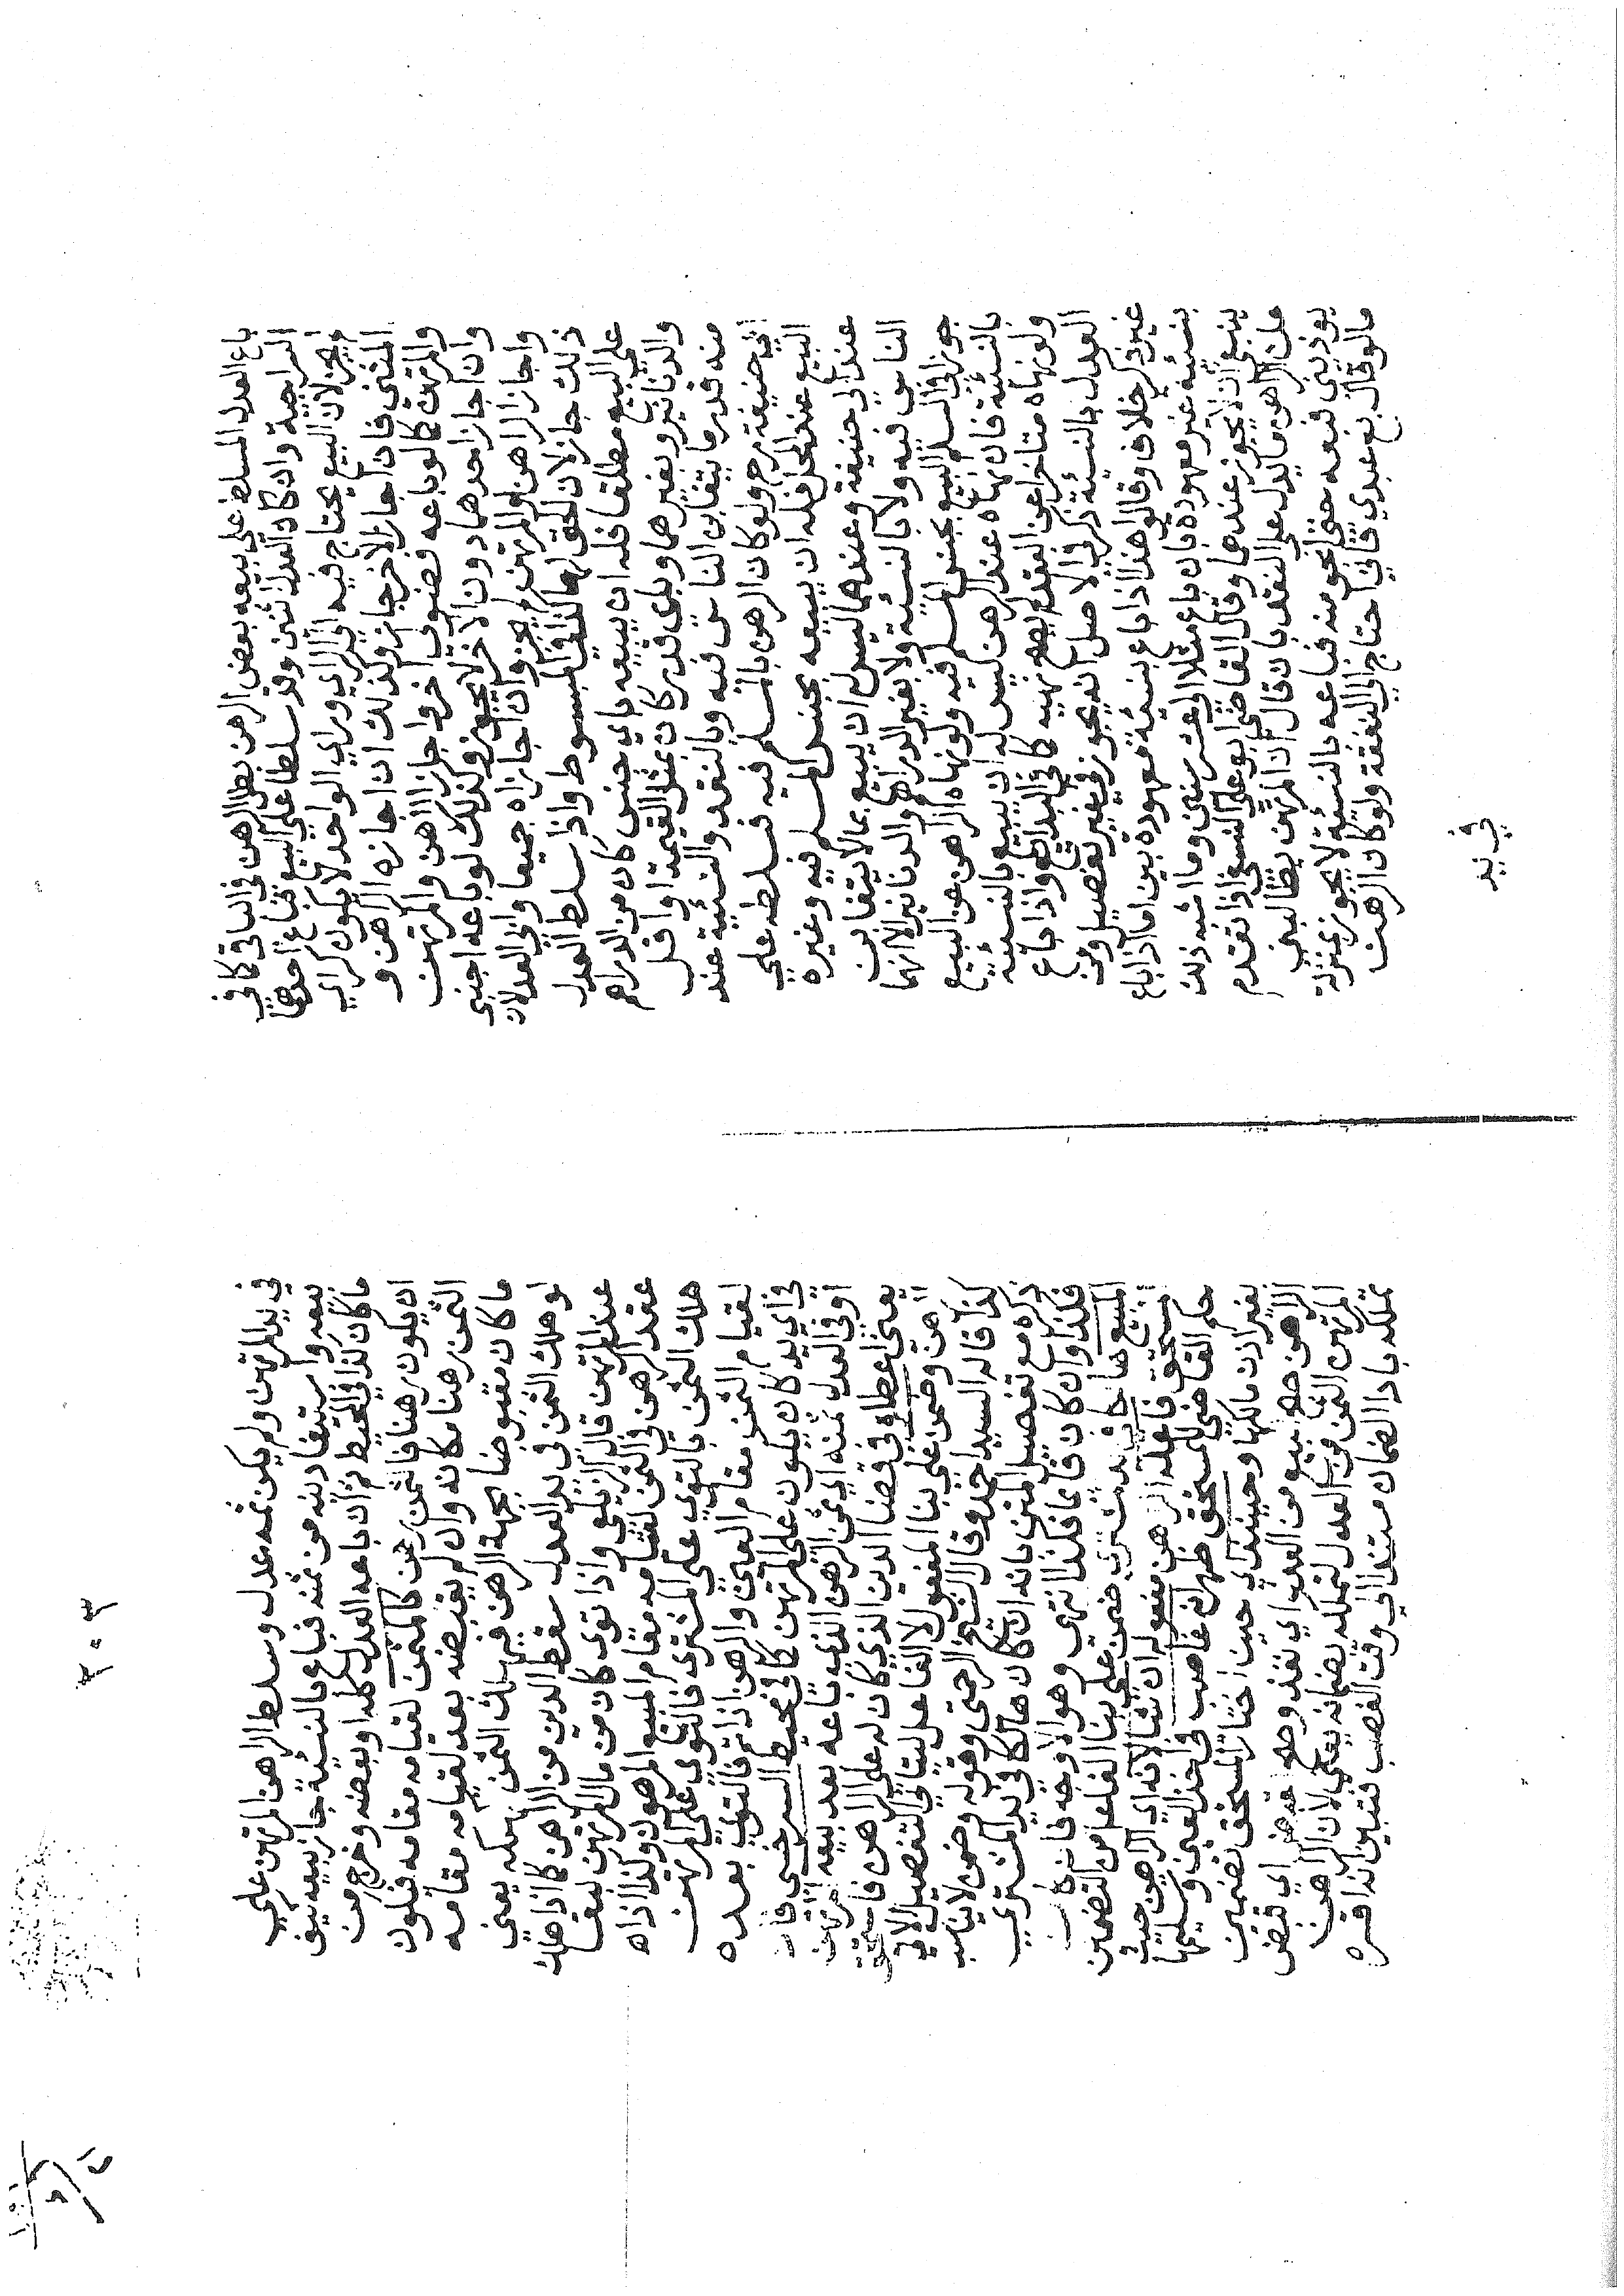 باع العدل المسلط على بيعه بعض الرهن بطل الرهن في الباقي كما في
السراجية وان كان العدل اثنين وقد سلطا على البيع فباع احدهما
لم يجز لان البيع يحتاج فيه الى الراي وراي الواحد لا يكون كراي
المثنى فان اجاز الاخر جاز وكذلك ان اجازه الراهن و
والمرتهن كما لو باعه فضولي اخر واجاز الراهن والمرتهن
وان اجاز احدهما دون الاخر لا يجوز وكذلك لو باعه اجنبي
واجاز الراهن والمرتهن لم يجز وان اجازاه جميعا وابى العدلان
ذلك جاز لان الحق لهما كذا في المبسوط واذا سلط العدل
على البيع مطلقا فله ان يبيعه باي جنس كان من الدراهم
والدنانير وبغيرهما وباي قدر كان بمثل القيمة او اقل
منه قدر ما يتغابن الناس فيه وبالنقد والنسئية عند
ابي حنيفة رح ولو كان الرهن بالمسلم فيه فسلطه على
البيع عند المحل فله ان يبيعه بجنس المسلم فيه وغيره
عند ابي حنيفة وعندهما ليس له ان يبيع بما لا يتغابن
الناس فيه ولا بالنسئية ولا بغير الدراهم والدنانير الا انهما
جوزا في السلم البيع بجنس المسلم فيه ولو نهاه الراهن عن البيع
بالنسئية فان نهاه عند الرهن ليس له ان يبيع بالنسئية
ولو نهاه متاخرا عن العقد لم يصح نهيه كما في البدائع واذا باع
العدل بالنسئية ذكر في الاصل انه يجوز في غير تفصيل ومن
غير ذكر خلاف وقالوا هذا اذا باع بنسئية معهودة بين اما اذا باع
بنسئية غير معهودة بان باع مثلا الى عشر سنين وما اشبه ذلك
ينبغي ان لا يجوز عندهما وقال القاضي ابو علي النسفي اذا تقدم
من الراهن ما يدل على النقد بان قال ان المرتهن يطالبني
بدينى فبعه حتى انجو منه فباعه بالنسئية لا يجوز بمنزلة
ما لو قال بع عبدي فاني احتاج الى النفقة ولو كان الرهن
في يد
٣٠٣
في يد المرتهن ولم يكن ثمه عدل وسلط الراهن المرتهن على
بيعه واستيفا دينه من ثمنه فباع بالنسئية جاز بيعه كيف
ماكان كذا في المحيط ثم ان باعه العدل كله او بعضه وخرج من
ان يكون رهنا فالثمن رهن كالمثمن لقيامه مقامه فيكون
الثمن رهنا مكانه وان لم يقبضه بعد لقيامه مقامه
ماكان مقبوضا بجهة الرهن فيهلك الثمن كهلكه يعني
لو هلك الثمن في يد العدل سقط الدين من الراهن كما اذا هلك
عند المرتهن قال الزيلعي واذا توى كان من مال المرتهن لبقا
عقد الرهن في الثمن لقيامه مقام المبيع المرهون وكذا اذا
هلك الثمن بالتوي على المشتري فالتوي على المرتهن
لقيام الثمن مقام العين والرهن اذا تم فالتوي بعده
في اي يد كان يكون على المرتهن كما في محيط السرخسي فان
اوفى العدل ثمنه اي ثمن الرهن الذي باعه بعد بيعه المرتهن
يعني اعطاه في قضا الدين الذي كان له على الراهن فاستحق
الرهن وضمن على بنا المفعول لا الفاعل ليتاتى التفصيل الاتي
كذا قاله السيد احمد وقال الشيخ الرحمتي وقوله وضمن لا يناسب
ذكره مع تفصيل المتن بانه ان كان هالكا في يد المشتري
فكذا وان كان قايما فكذا انتهى وهو الاوجه فان كان
المبيع هالكا في يد مشتري ضمن على بنا الفاعل من التضمين
المستحق فاعله الراهن مفعوله ان شا لانه اي الراهن حيث
حكم القاضي للمستحق ظهر انه غاصب في اخذ العين وتسليمها
بغير اذن مالكها وحينئذ اي حين اختار المستحق تضمين
الراهن صح بيع من العدل اي نفذ وصح قبض اي قبض
المرتهن الثمن من العدل لتملكه بضمانه يعني لان الراهن
تملكه بادا الضمان مستندا الى وقت الغصب فتبين انه اقره